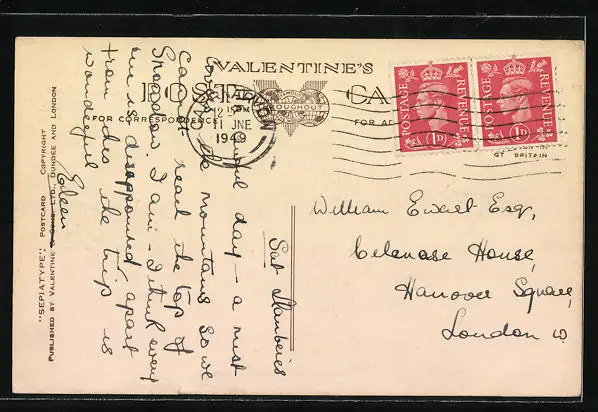 VALENTINE'S
POST CARD
FOR CORRESPONDENCE
12 15 PM
11 JNE
1949
POSTAGE REVENUE
1D
POSTAGE REVENUE
1D
GT. BRITAIN
Sat
day - a mist
the mountains so we
can't reach the top of
Snowdon. I am - I think every
one is disappointed, apart
from this the trip is
wonderful
Eileen
William Ewart Esq,
Celanese House,
Hanover Square,
London W
"SEPIATYPE" POSTCARD COPYRIGHT
PUBLISHED BY VALENTINE & SONS, LTD., DUNDEE AND LONDON